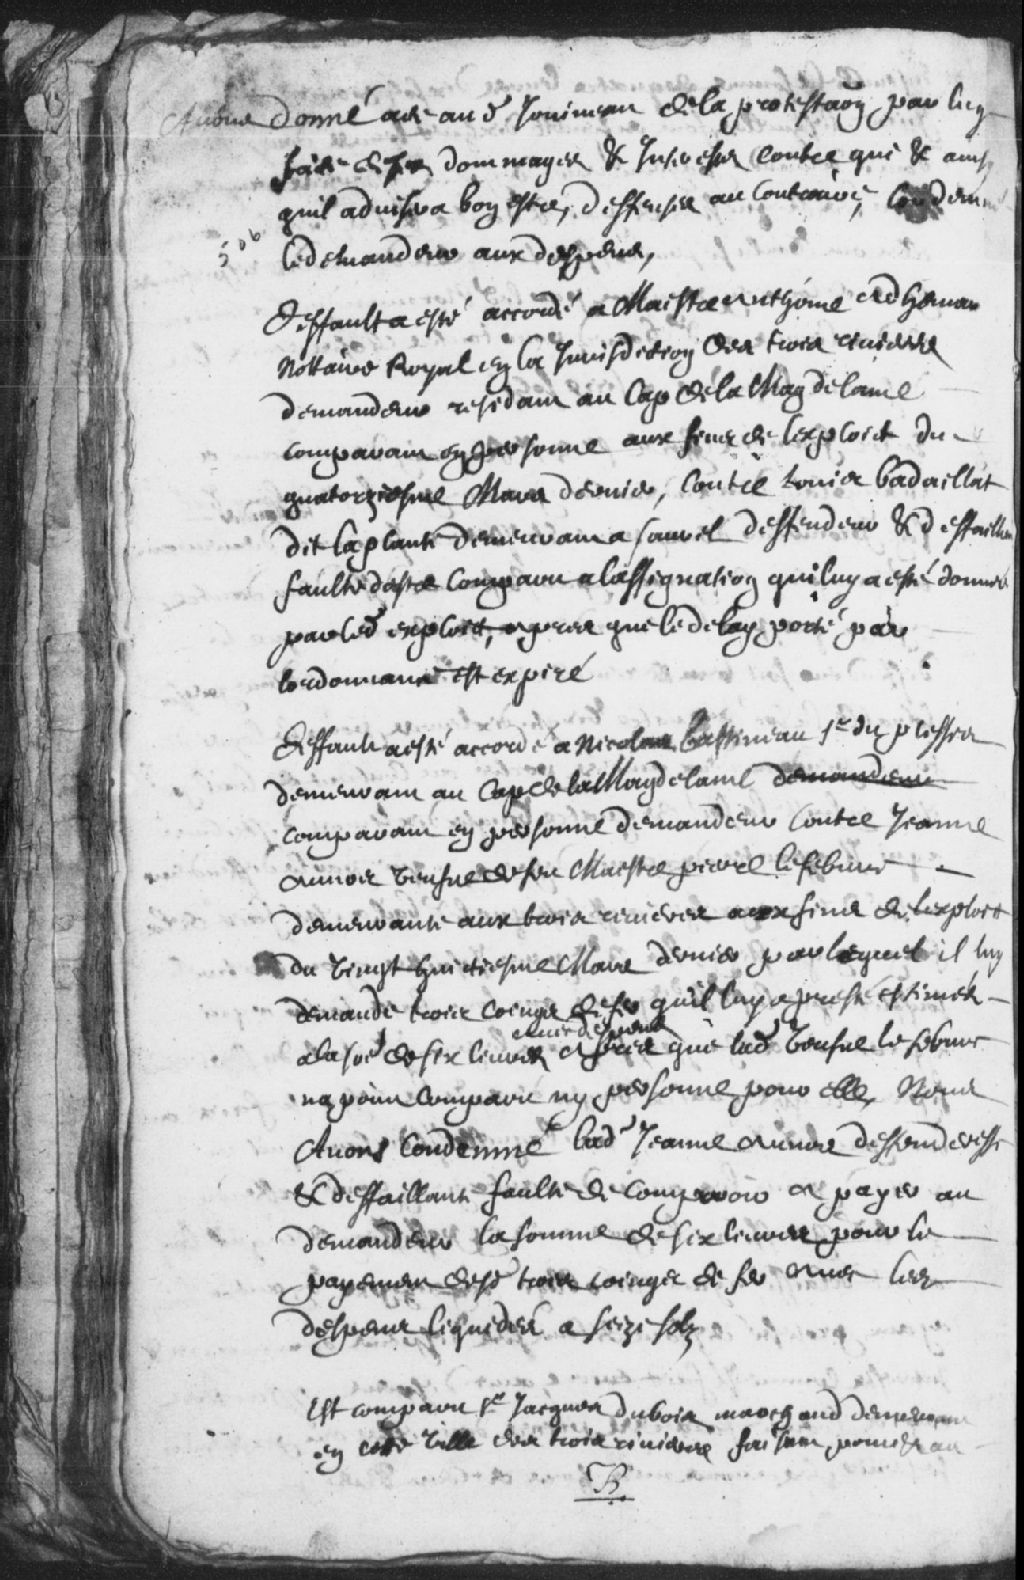 Avons donné acte au d. Jouineau de la protestaõn par luy
faite de ses dommages & Interestz contre qui & ainsy
quil advisera bon estre, deffenses au contraire, Condemné
le demandeur aux despens,
506
Deffault a esté accordé a Maistre Anthoine Adhemar
Nottaire Royal en la Jurisdiction des trois rivieres
demandeur residant au Cap de la Magdelaine
comparant en personne aux fins de lexploict du
quatorziesme Mars dernier, Contre Louis badaillat
dit laplante demeurant a sauvel deffendeur & deffaillant
faulte destre Comparu a lassignation qui luy a esté donnée
par led exploict, apres que le delay porté par
lordonnance est expiré
Deffault a esté accordé a Nicolas Gastineau Sr du plessis
demeurant au Cap de la Magdelaine demandeur
comparant en personne demandeur Contre Jeanne
Aunois veufve de feu Maistre pierre lefebvre
demeurante aux trois rivieres aux fins de lexploict
du vingt huictiesme Mars dernier par lequel il luy
demande trois coings de fer quil luy a presté estimés
avec despens
a la soe de six livres apres que lad veufve lefebvre
na point comparu ny personne pour elle, Nous
Avons Condemné lad Jeanne Aunois deffenderesse
& deffaillante faulte de comparoir a payer au
demandeur la somme de six livres pour le
payement desd trois coinges de fer avec les
despens liquidés a seize solz
Est comparu Sr Jacques dubois marchand demeurant
en cette ville des trois rivieres faisant pour